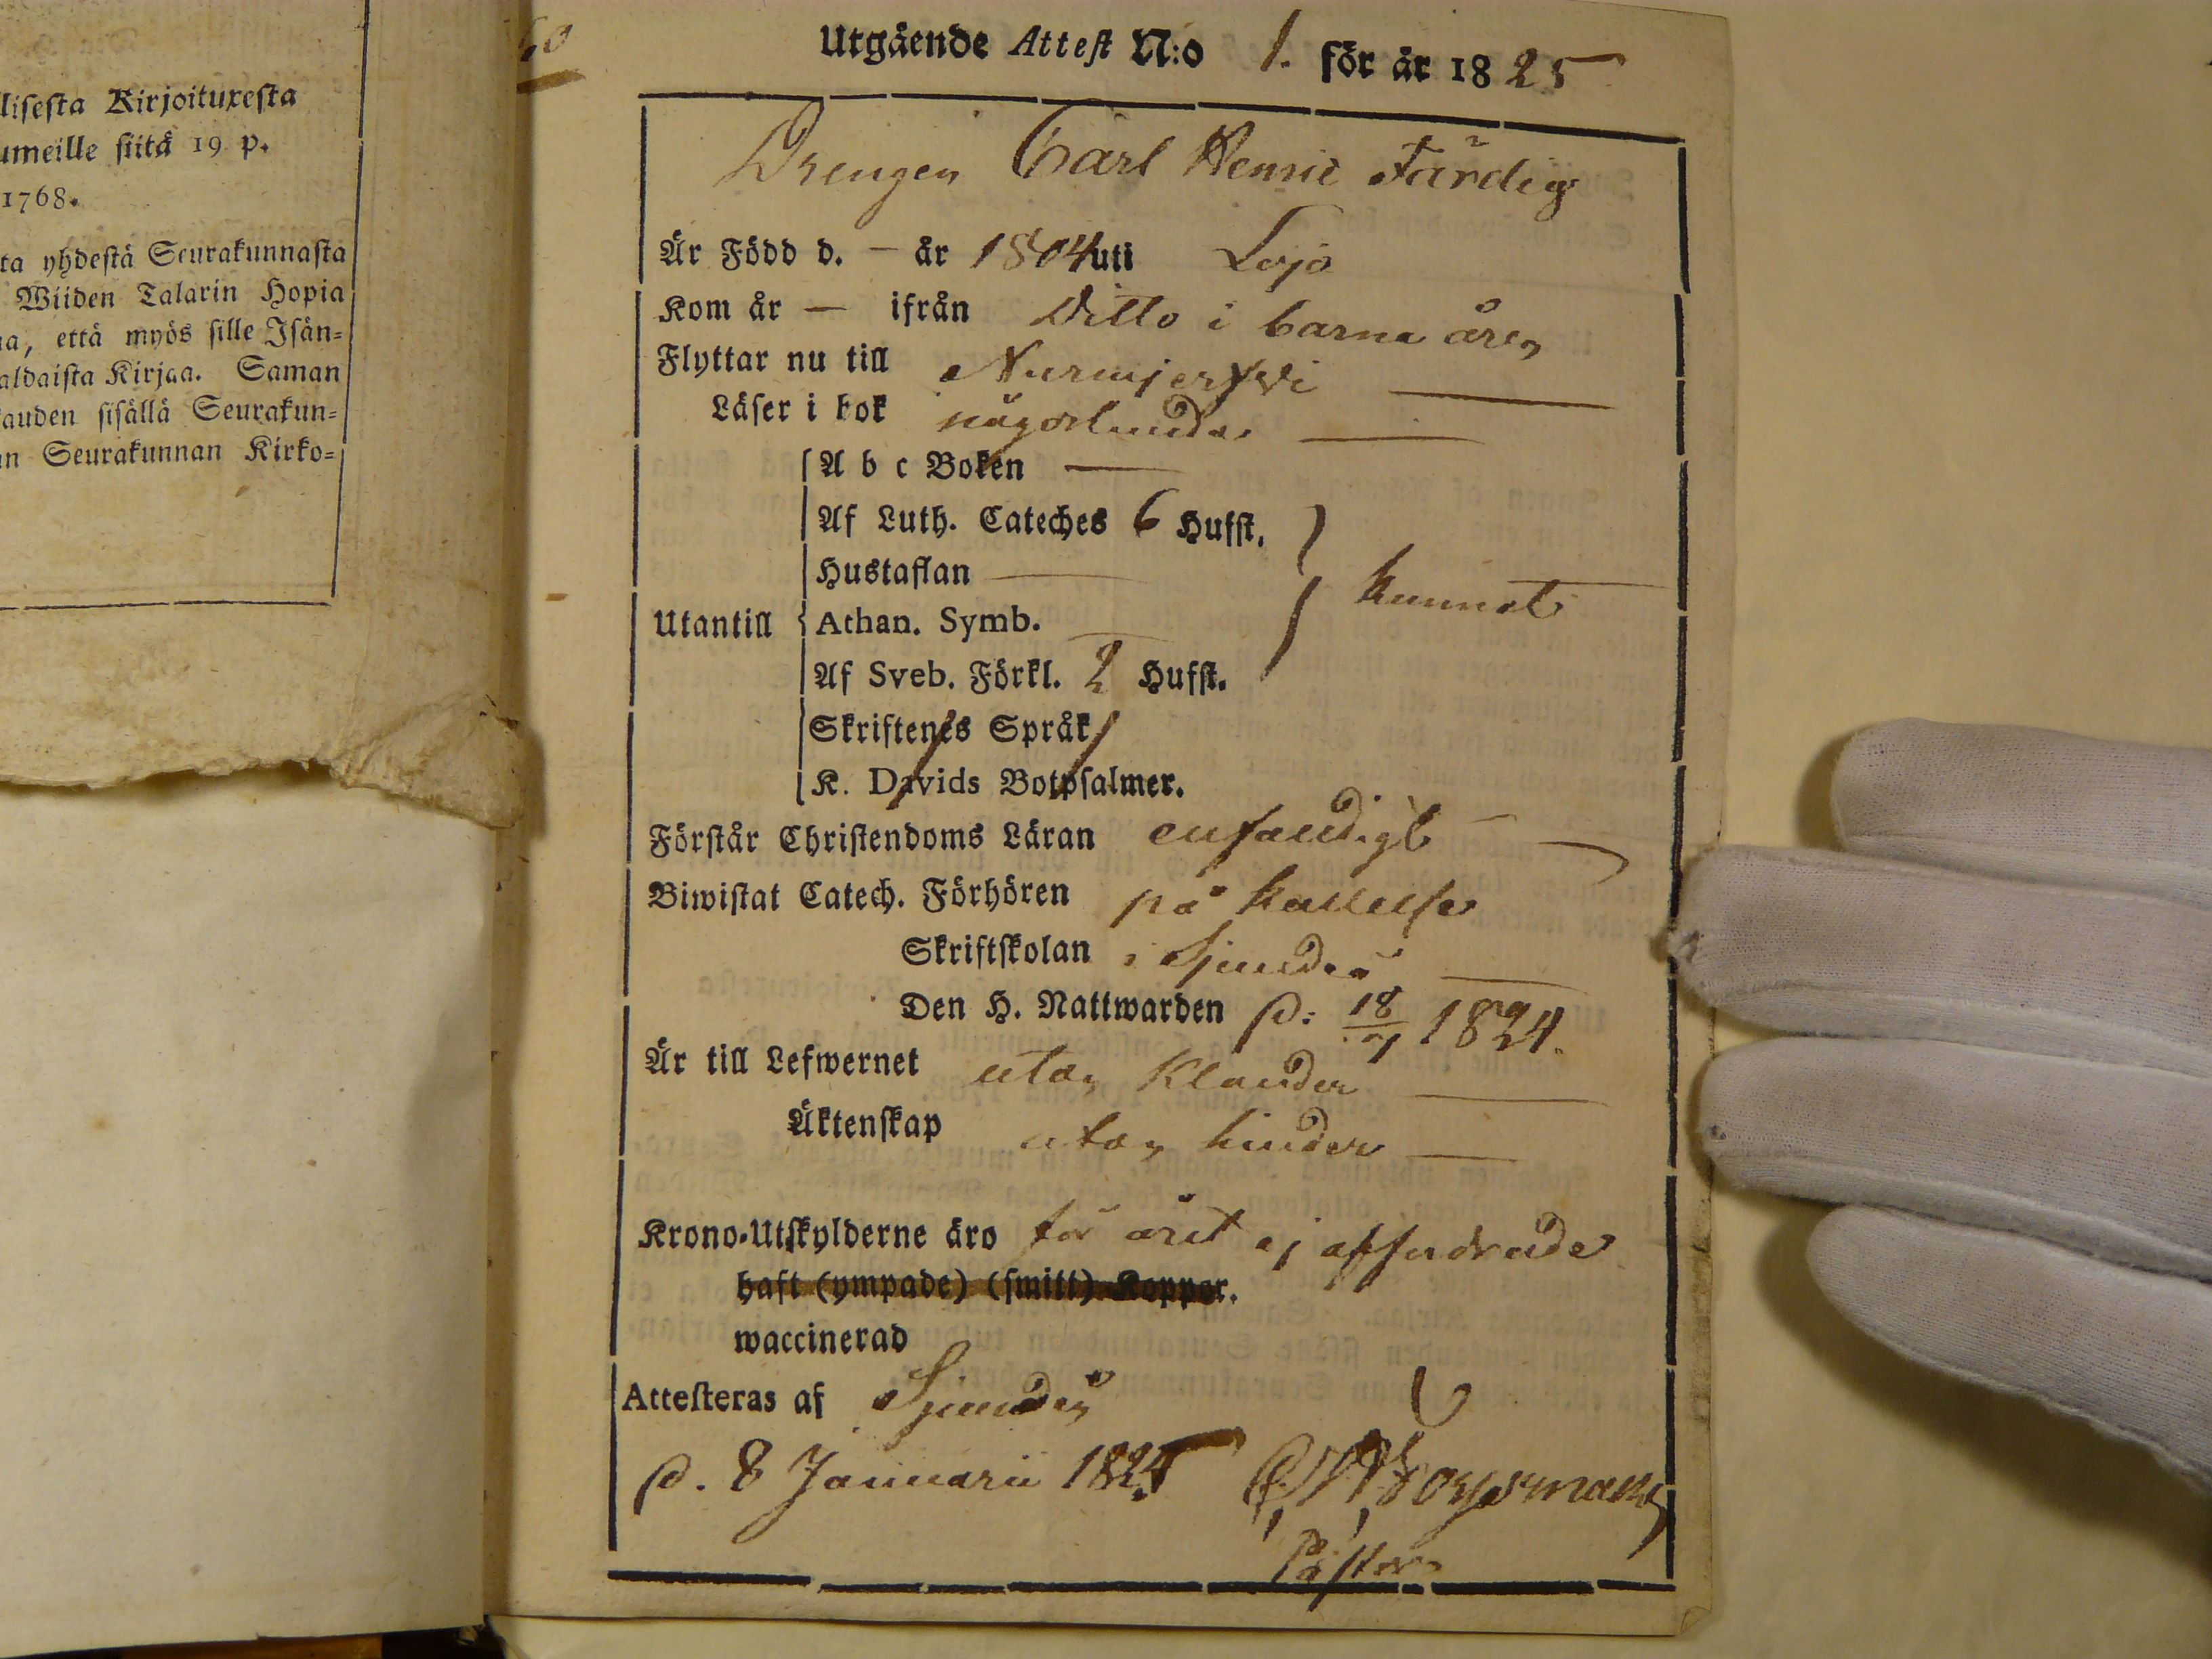 lisesta Kirjoituxesta
umeille siitä 19 p.
1768.
ta yhdestä Seurakunnasta
Wiiden Talarin Hopia
a, että myös sille Isän-
aldaista Kirjaa. Saman
auden sisällä Seurakun-
n Seurakunnan Kirko-
Utgående Attest N:o 1. för år 1825
Drengen Carl Henric Färdig
Är Född d. — år 1804 uti Lojo
Kom år — ifrån Ditto i barna åren
Flyttar nu till Nurmijerfvi
Läser i bok någorlunda
A b c Boken
Af Luth. Cateches 6 Hufst.
Hustaflan
kunnat
Utantill Athan. Symb.
Af Sveb. Förkl. 2 Hufst.
Skriftenes Språk
K. Davids Botpsalmer.
Förstår Christendoms Läran enfaldigt
Biwistat Catech. Förhören på kallelse
Skriftskolan i Sjundeå
Den H. Nattwarden d: 18/7 1824.
Är till Lefwernet utan klander
Äktenskap utan hinder
Krono-Utskylderne äro för året ej affordrade
haft (ympade) (smitt) Koppor.
waccinerad
Attesteras af Sjundeå
d. 8 Januarii 1825
Pastor